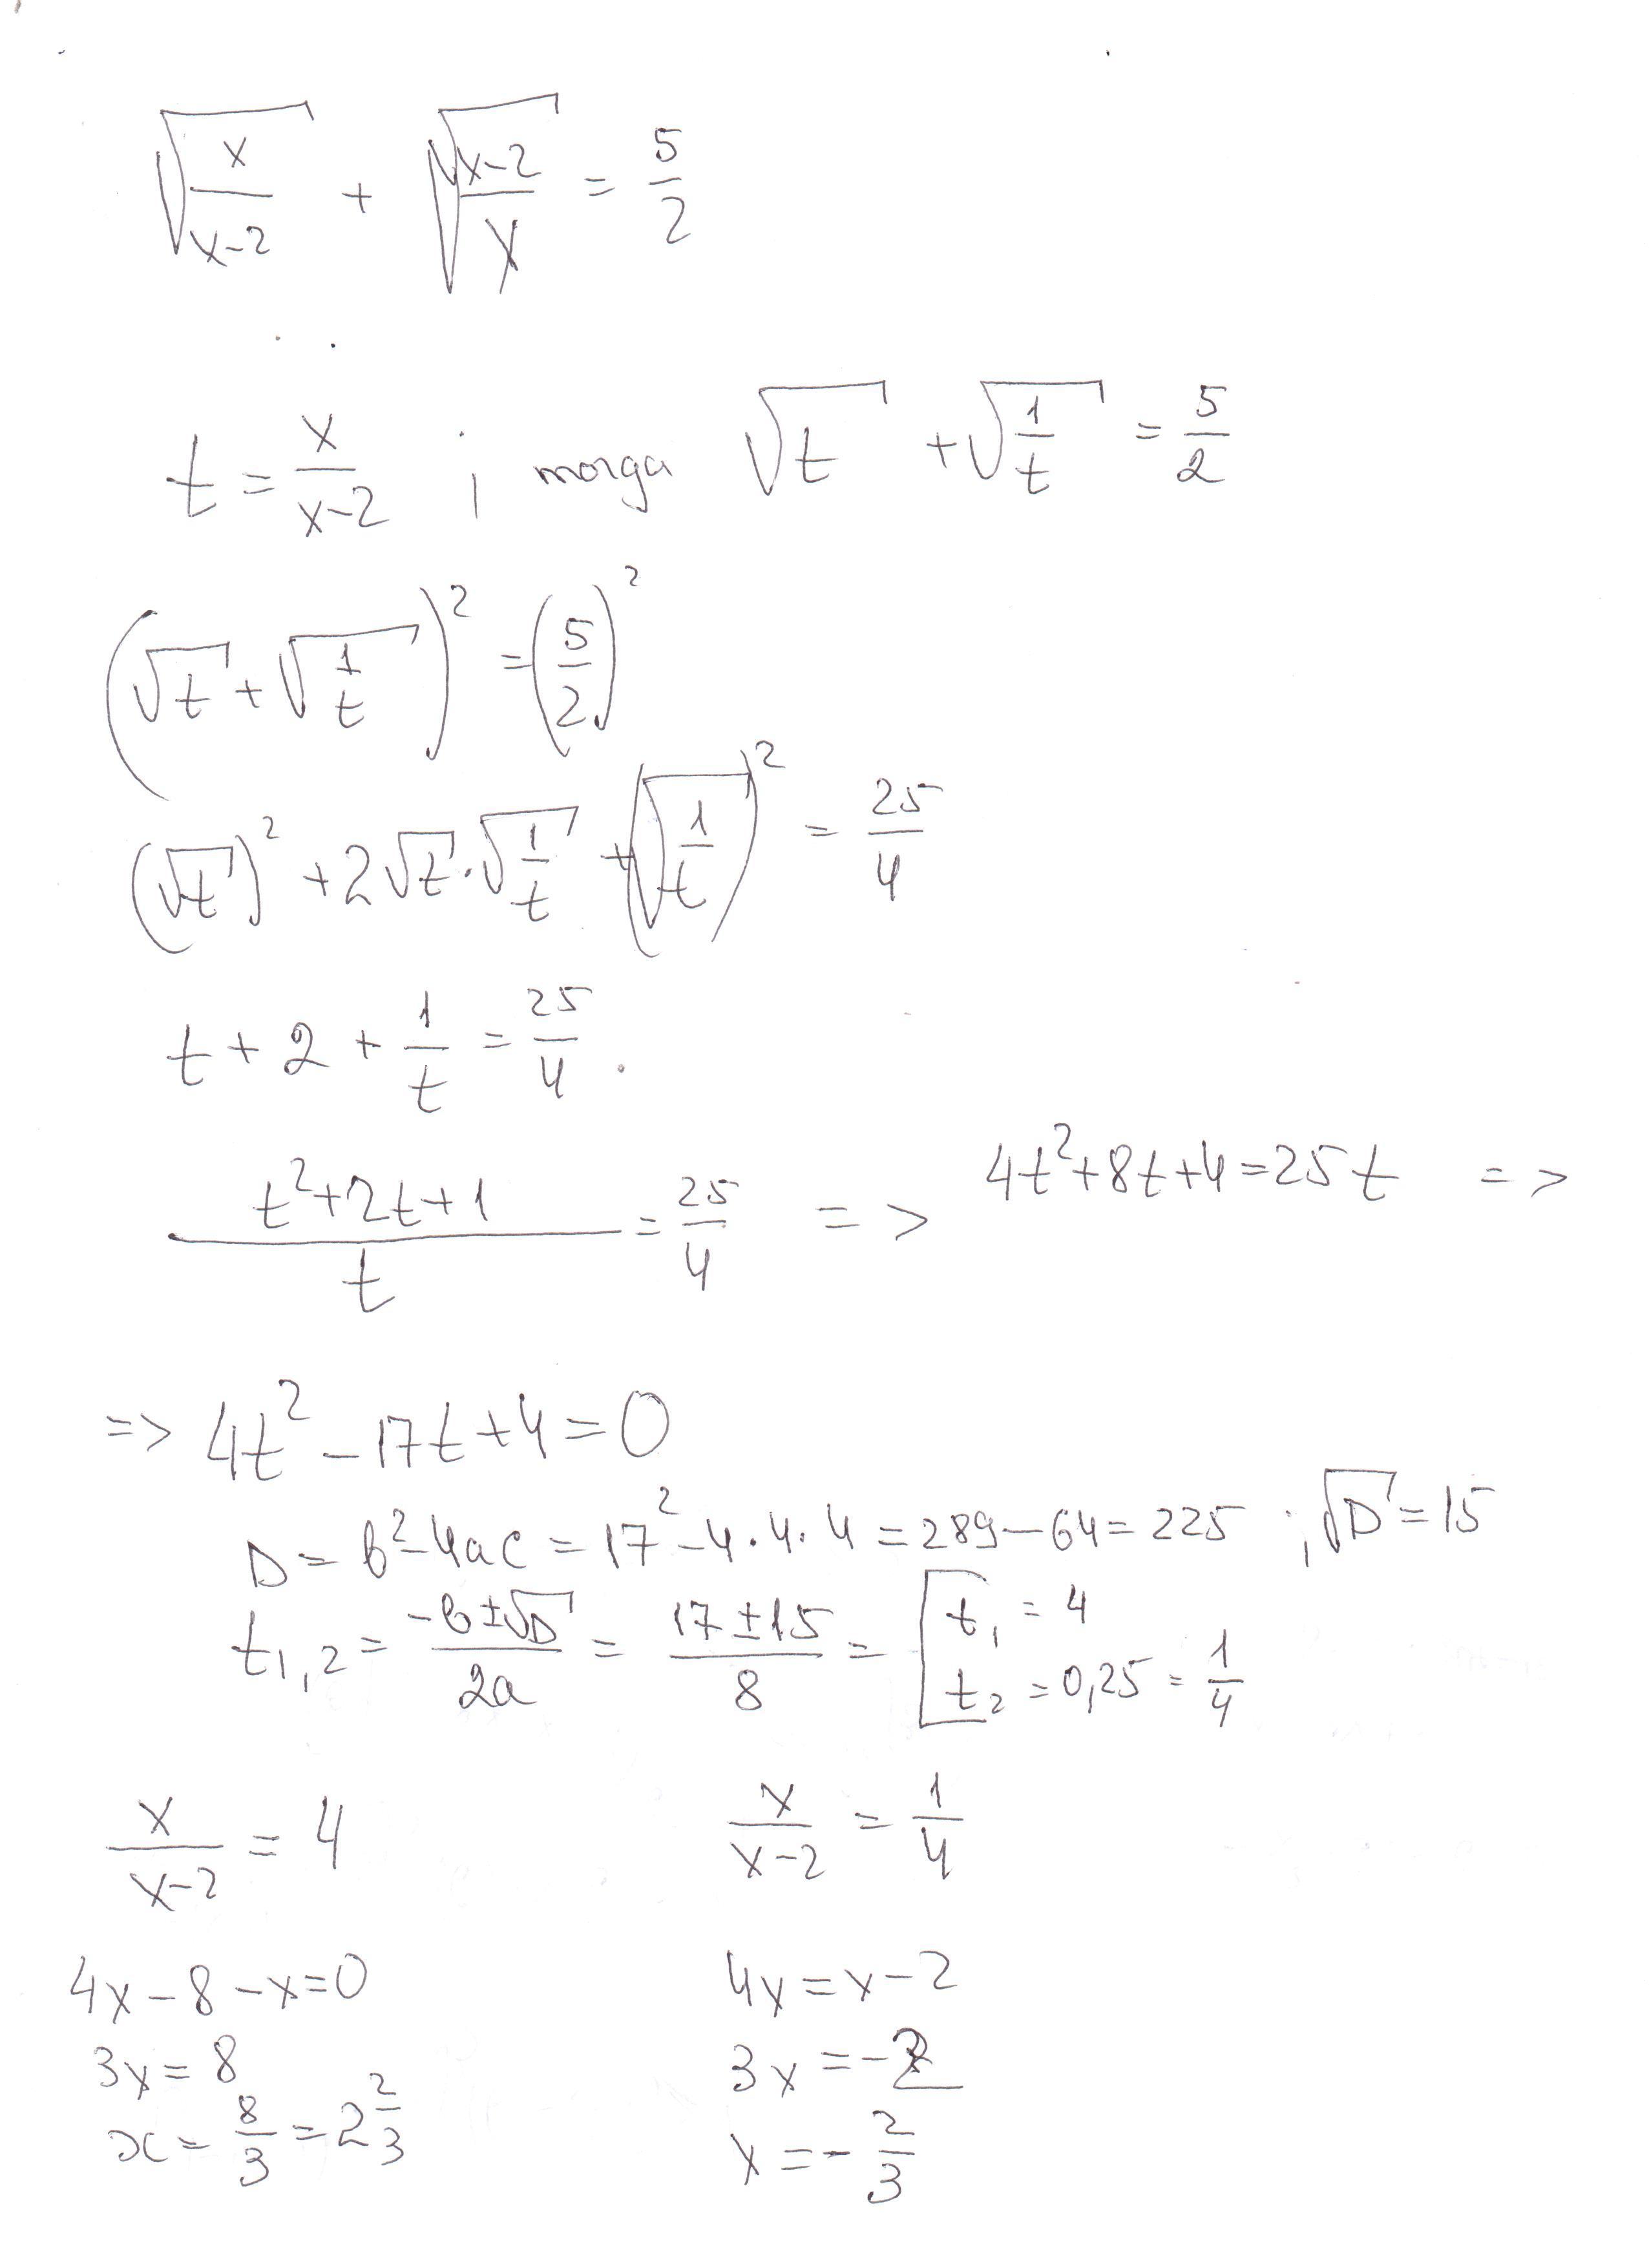 √(x/(x-2)) + √((x-2)/x) = 5/2
t = x/(x-2) ; тогда √t + √(1/t) = 5/2
(√t + √(1/t))² = (5/2)²
(√t)² + 2√t·√(1/t) + (√(1/t))² = 25/4
t + 2 + 1/t = 25/4
(t²+2t+1)/t = 25/4 => 4t²+8t+4=25t =>
=> 4t² - 17t + 4 = 0
D = b²-4ac = 17²-4·4·4 = 289-64 = 225 ; √D = 15
t₁,₂ = (-b±√D)/2a = (17±15)/8 = [t₁ = 4
t₂ = 0,25 = 1/4
x/(x-2) = 4 x/(x-2) = 1/4
4x-8-x=0 4x=x-2
3x=8 3x=-2
x = 8/3 = 2 2/3 x = -2/3